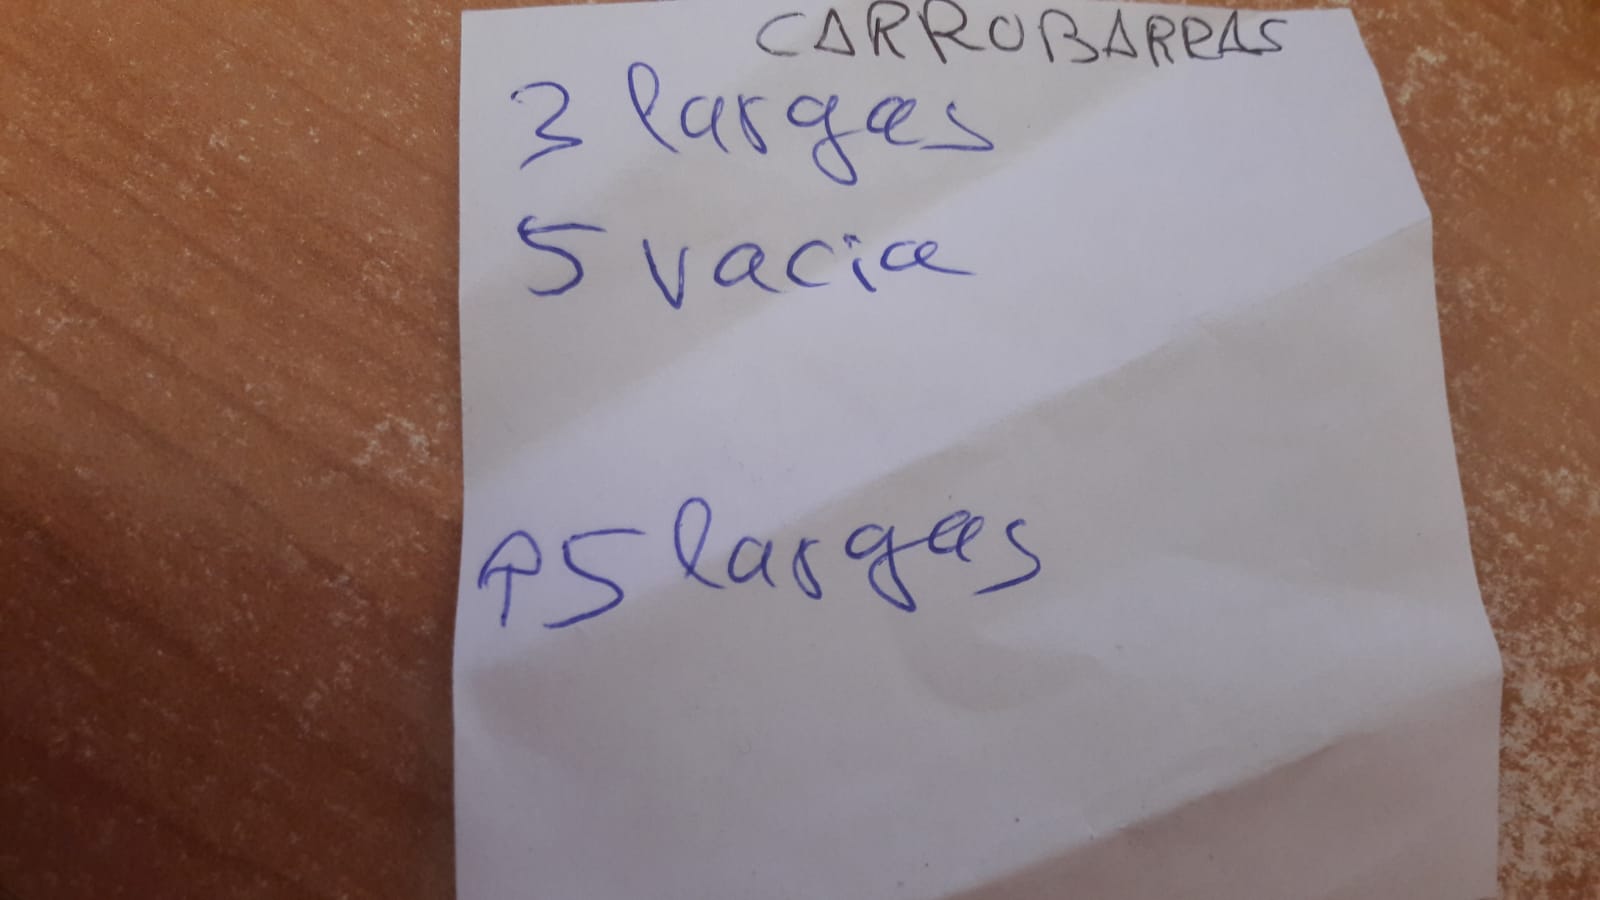 CARROBARRAS
3 largas
5 vacia
↑5 largas